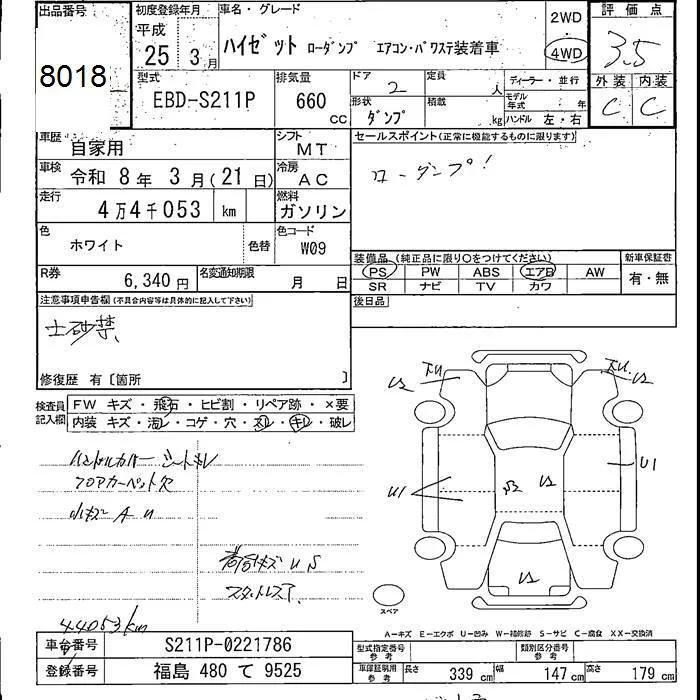 出品番号
8018
初度登録年月
平成
25 3月
車名・グレード
ハイゼット ローダンプ エアコン・パワステ装着車
2WD
4WD
評価点
3.5
外装 内装
C C
型式
EBD-S211P
排気量
660
CC
ドア 2
定員 人
形状 ダンプ
積載 kg
ディーラー・並行
モデル年式 ・ 年
ハンドル 左・右
車歴 自家用
シフト MT
車検 令和 8年 3月(21日)
冷房 AC
走行 4万4千053 km
燃料 ガソリン
色 ホワイト 色替
色コード W09
R券 6,340円
名変通知期限 月 日
セールスポイント(正常に機能するものに限ります)
ローダンプ!
装備品 (純正品に限り○をつけてください)
PS PW ABS エアB AW
SR ナビ TV カワ
新車保証書
有・無
後日品
注意事項申告欄(不具合内容等は具体的に記入して下さい)
土砂禁
修復歴 有〔箇所 〕
検査員記入欄
FW キズ・飛石・ヒビ割・リペア跡・×要
内装 キズ・汚レ・コゲ・穴・スレ・キレ・破レ
ハンドルカバー シートキレ
フロアカーペット欠
小キズ A U
荷台キズ U S
スタットレス
44053km
US
US
U1
U1
US
US
スペア
A-キズ E-エクボ U-凹み W-補修跡 S-サビ C-腐食 XX-交換済
車台番号 S211P-0221786
登録番号 福島 480 て 9525
型式指定番号 参考
類別区分番号 参考
車庫証明用 参考
長さ 339 cm 幅 147 cm 高さ 179 cm